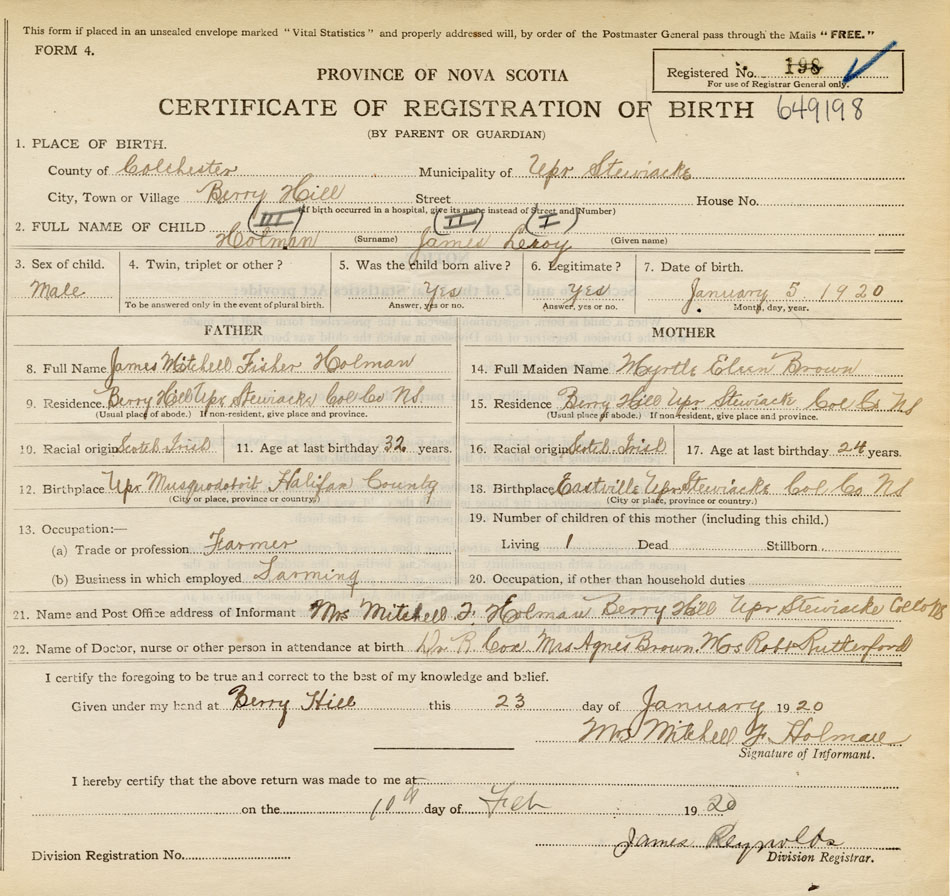 This form if placed in an unsealed envelope marked "Vital Statistics" and properly addressed will, by order of the Postmaster General pass through the Mails "FREE."
FORM 4.
Registered No. 198
For use of Registrar General only.
PROVINCE OF NOVA SCOTIA
CERTIFICATE OF REGISTRATION OF BIRTH 649198
(BY PARENT OR GUARDIAN)
1. PLACE OF BIRTH.
County of Colchester Municipality of Upr Stewiacke
City, Town or Village Berry Hill Street House No.
(If birth occurred in a hospital, give its name instead of Street and Number)
(III) (II) (I)
2. FULL NAME OF CHILD Holman (Surname) James Leroy (Given name)
3. Sex of child. 4. Twin, triplet or other? 5. Was the child born alive? 6. Legitimate? 7. Date of birth.
Male Yes Yes January 5, 1920
To be answered only in the event of plural birth. Answer, yes or no. Answer, yes or no. Month, day, year.
FATHER MOTHER
8. Full Name James Mitchell Fisher Holman 14. Full Maiden Name Myrtle Brown
9. Residence Berry Hill Upr Stewiacke Col Co NS. 15. Residence Berry Hill Upr Stewiacke Col Co NS
(Usual place of abode.) If non-resident, give place and province. (Usual place of abode.) If non-resident, give place and province.
10. Racial origin Scotch Irish 11. Age at last birthday 32 years. 16. Racial origin Scotch Irish 17. Age at last birthday 24 years.
12. Birthplace Upr Musquodoboit Halifax County 18. Birthplace Eastville Upr Stewiacke Col Co NS
(City or place, province or country) (City or place, province or country.)
13. Occupation:— 19. Number of children of this mother (including this child.)
(a) Trade or profession Farmer Living 1 Dead Stillborn
(b) Business in which employed Farming 20. Occupation, if other than household duties
21. Name and Post Office address of Informant Mrs Mitchell F. Holman Berry Hill Upr Stewiacke Col Co NS
22. Name of Doctor, nurse or other person in attendance at birth Dr R Cox Mrs Agnes Brown. Mrs Robt Rutherford
I certify the foregoing to be true and correct to the best of my knowledge and belief.
Given under my hand at Berry Hill this 23 day of January 1920
Mrs Mitchell F. Holman
Signature of Informant.
I hereby certify that the above return was made to me at
on the 10th day of Feb 1920
James Reynolds
Division Registration No. Division Registrar.